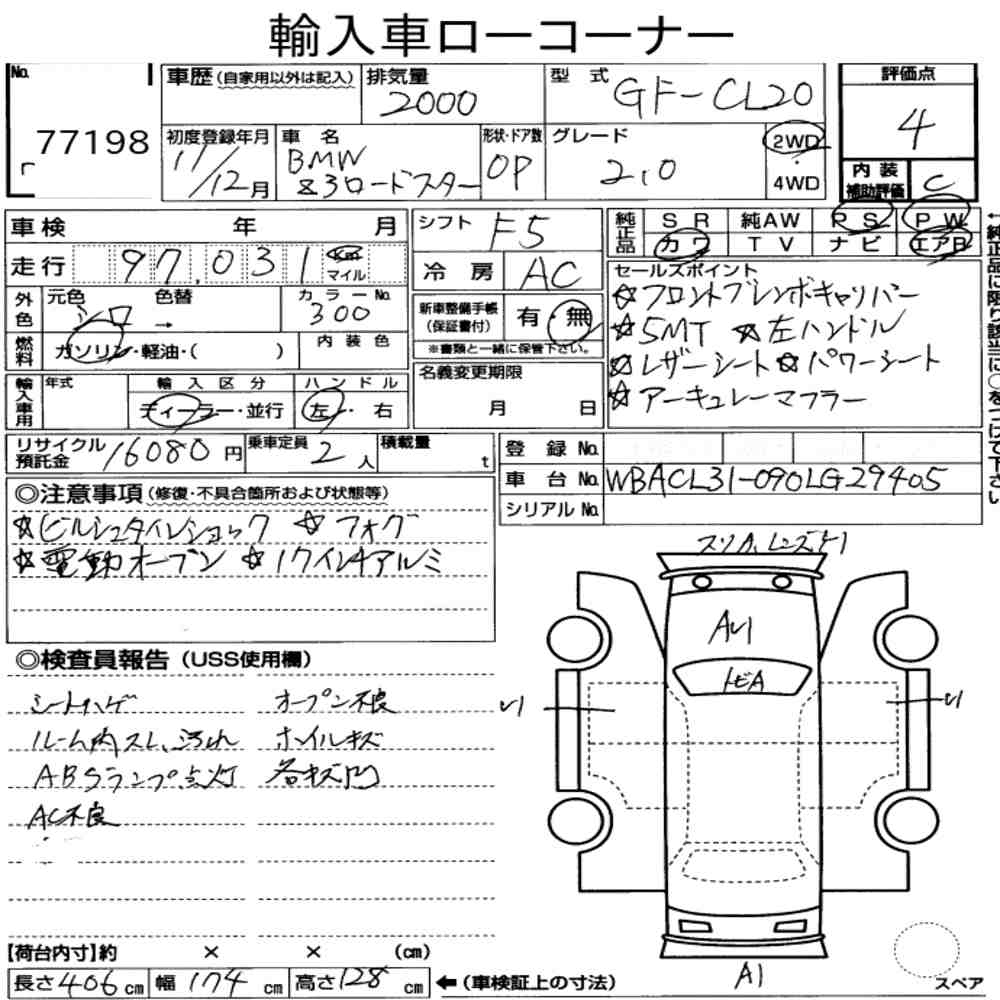 輸入車ローコーナー
No. 77198
車歴(自家用以外は記入) 排気量 2000 型式 GF-CL20 評価点 4
初度登録年月 11/12月 車名 BMW Z3ロードスター 形状・ドア数 OP グレード 2.0 2WD・4WD 内装補助評価 C
車検 年 月 シフト F5 純正品 SR 純AW PS PW
走行 97,031 Km マイル 冷房 AC カワ TV ナビ エアB
←純正品に限り該当に○をつけて下さい
外色 元色 シロ → 色替 カラーNo. 300 新車整備手帳(保証書付) 有・無
※書類と一緒に保管下さい。
燃料 ガソリン・軽油・( ) 内装色
セールスポイント
☆フロントブレンボキャリパー
☆5MT ☆左ハンドル
☆レザーシート☆パワーシート
☆アーキュレーマフラー
輸入車用 年式 輸入区分 ディーラー・並行 ハンドル 左・右 名義変更期限 月 日
リサイクル預託金 16080円 乗車定員 2人 積載量 t
登録No.
車台No. WBACL31-090LG29405
シリアルNo.
◎注意事項(修復・不具合箇所および状態等)
☆ビルシュタインショック ☆フォグ
☆電動オープン ☆17インチアルミ
スリキ,レンズケ1
A1
トビA
◎検査員報告(USS使用欄)
シートハゲ オープン不良
ルーム内スレ、汚れ ホイルキズ
ABSランプ点灯 各キズ凹
AC不良
A1
スペア
【荷台内寸】約 × × (cm)
長さ406cm 幅174cm 高さ128cm ←(車検証上の寸法)